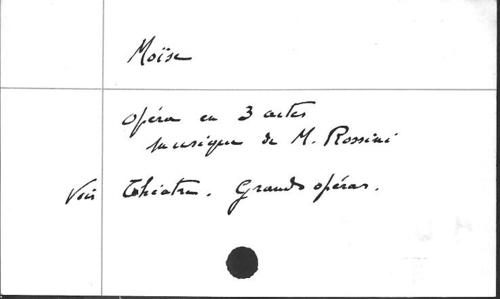 Moïse
opéra en 3 actes
musique de M. Rossini
Voir Théatre. Grands opéras.